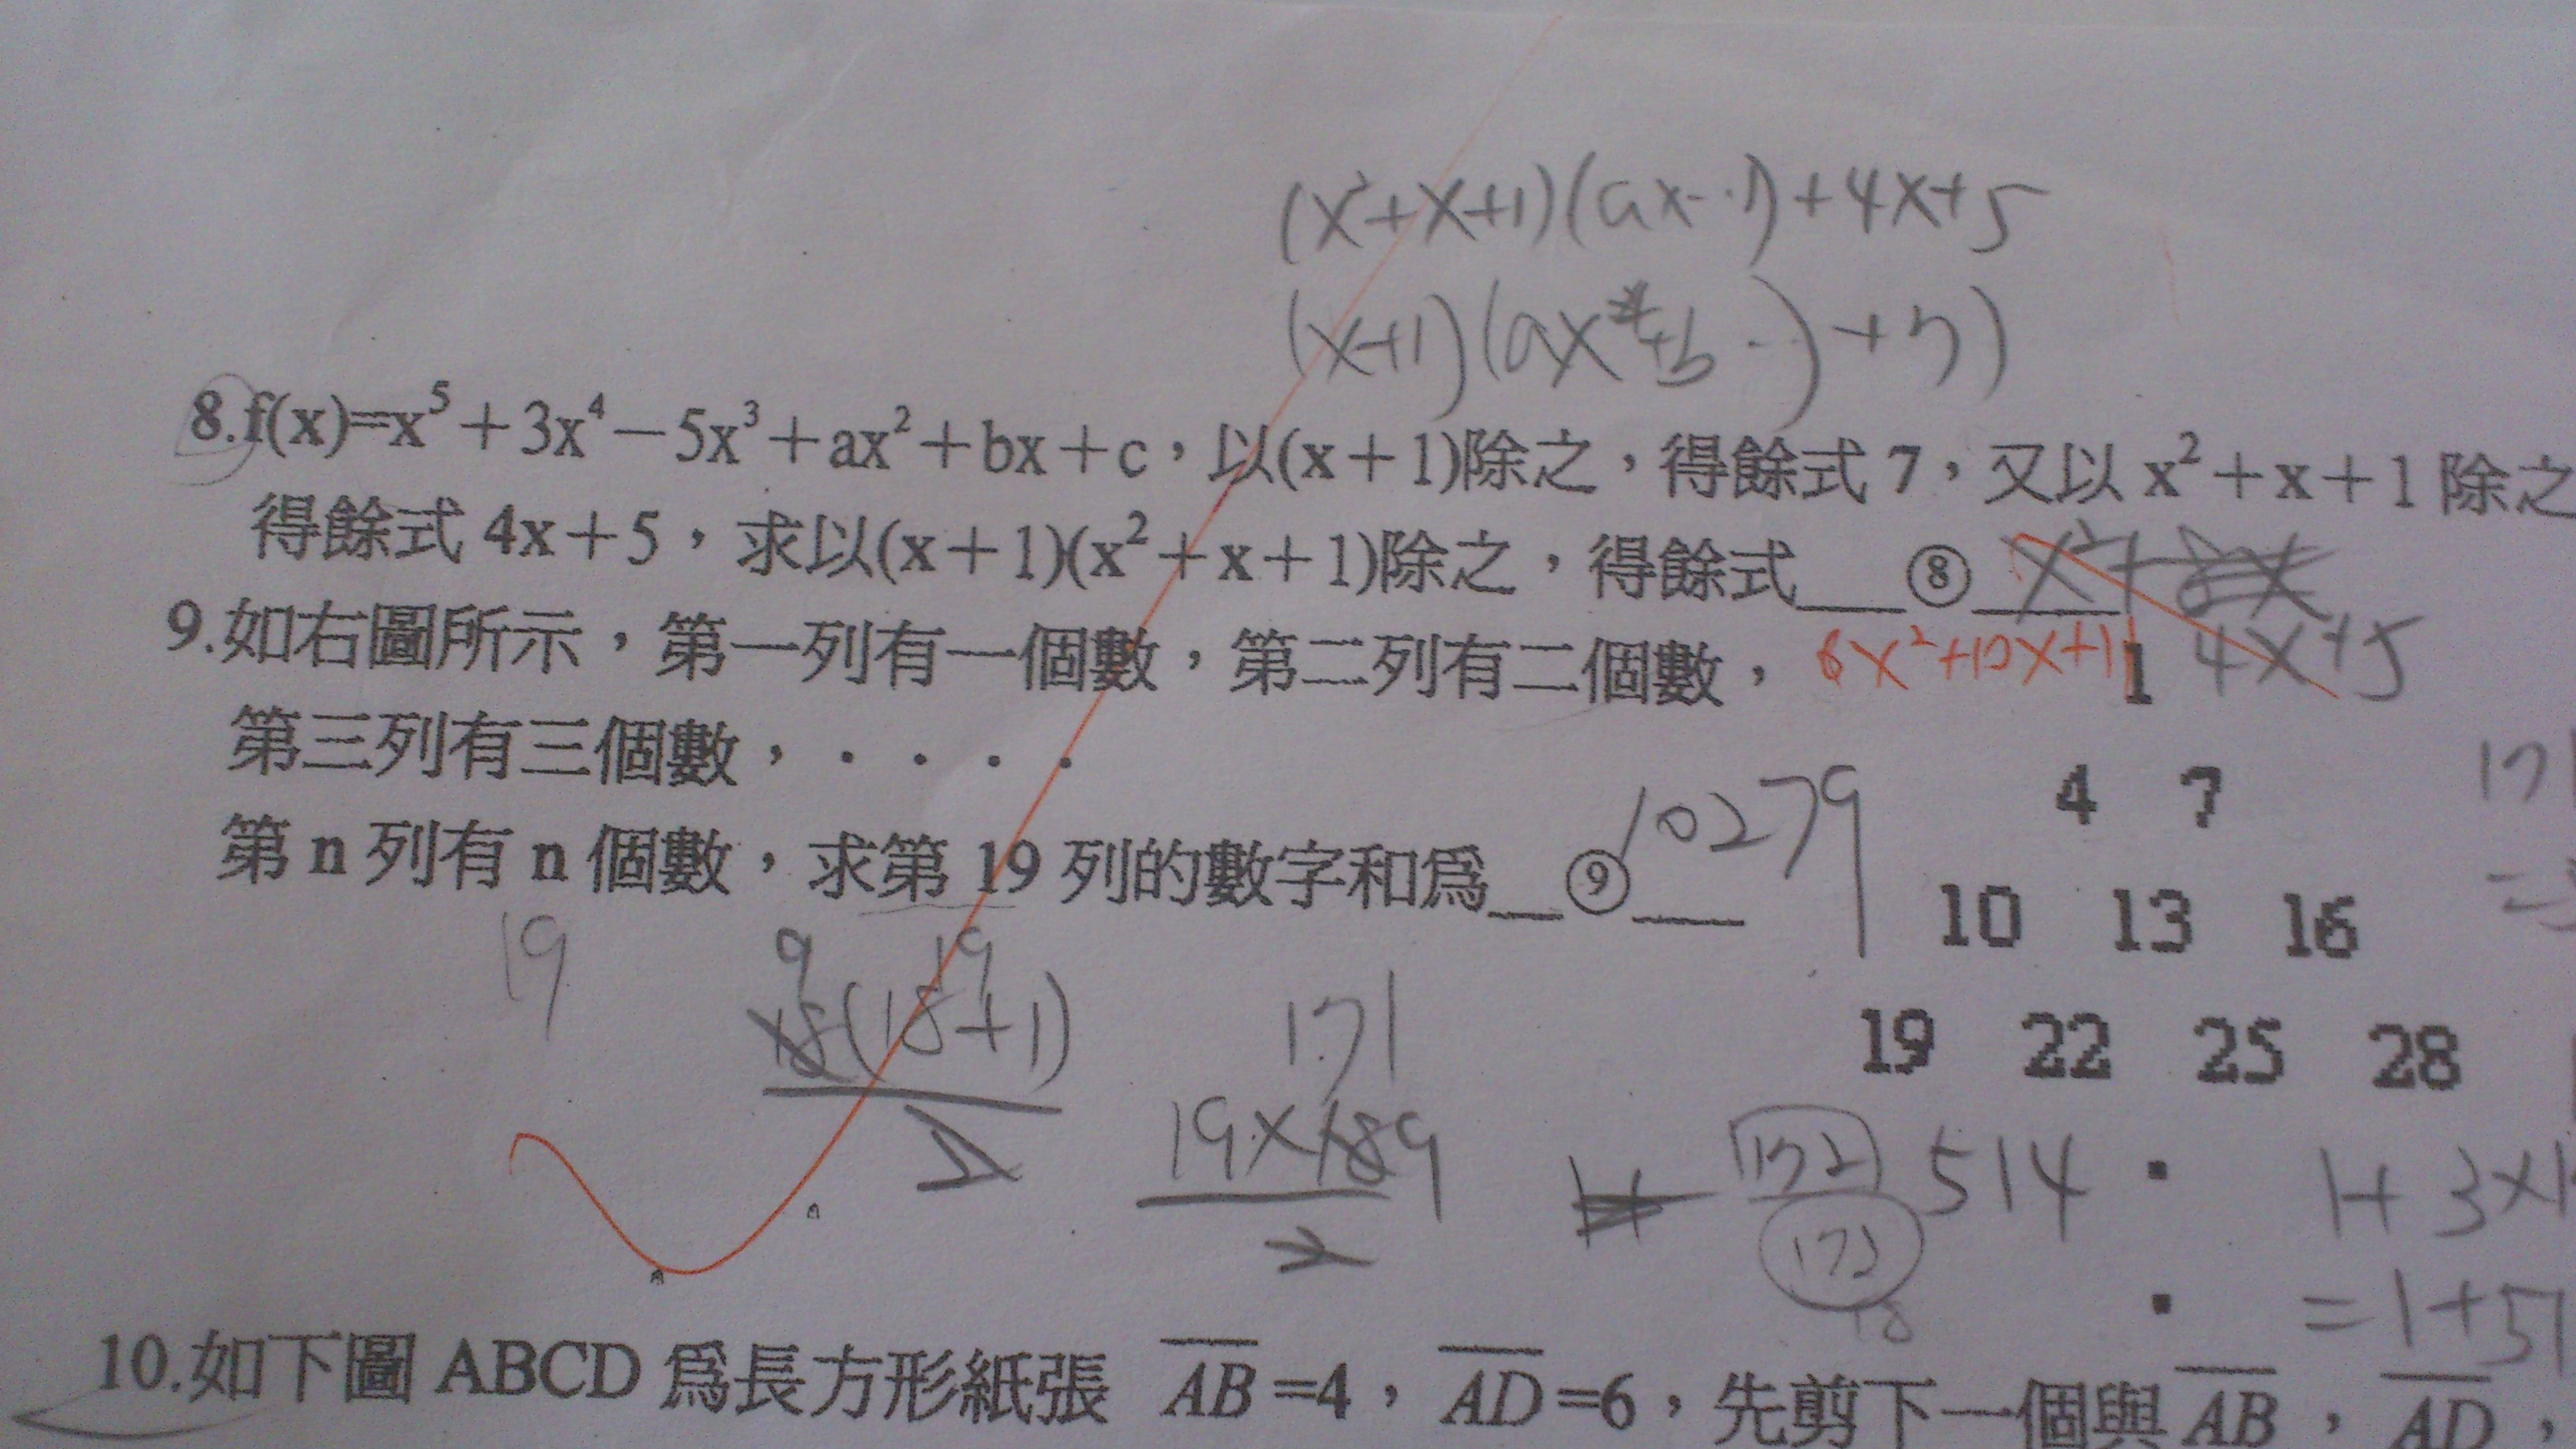 (x²+x+1)(ax-·1)+4x+5
(x+1)(ax+b··)+7)
8.f(x)=x⁵+3x⁴-5x³+ax²+bx+c,以(x+1)除之,得餘式 7,又以 x²+x+1 除之
得餘式 4x+5,求以(x+1)(x²+x+1)除之,得餘式___⑧____
6x²+10x+11 4x+5
9.如右圖所示,第一列有一個數,第二列有二個數, 1
第三列有三個數,‧‧‧‧
4 7 171
第 n 列有 n 個數,求第 19 列的數字和爲__⑨___ 10279
10 13 16
19 9 19
18(18+1) 171
2
19 22 25 28
19×189
2
172 514 · 1+3×1
172
18 · =1+51
10.如下圖 ABCD 爲長方形紙張 AB=4,AD=6,先剪下一個與 AB,AD,